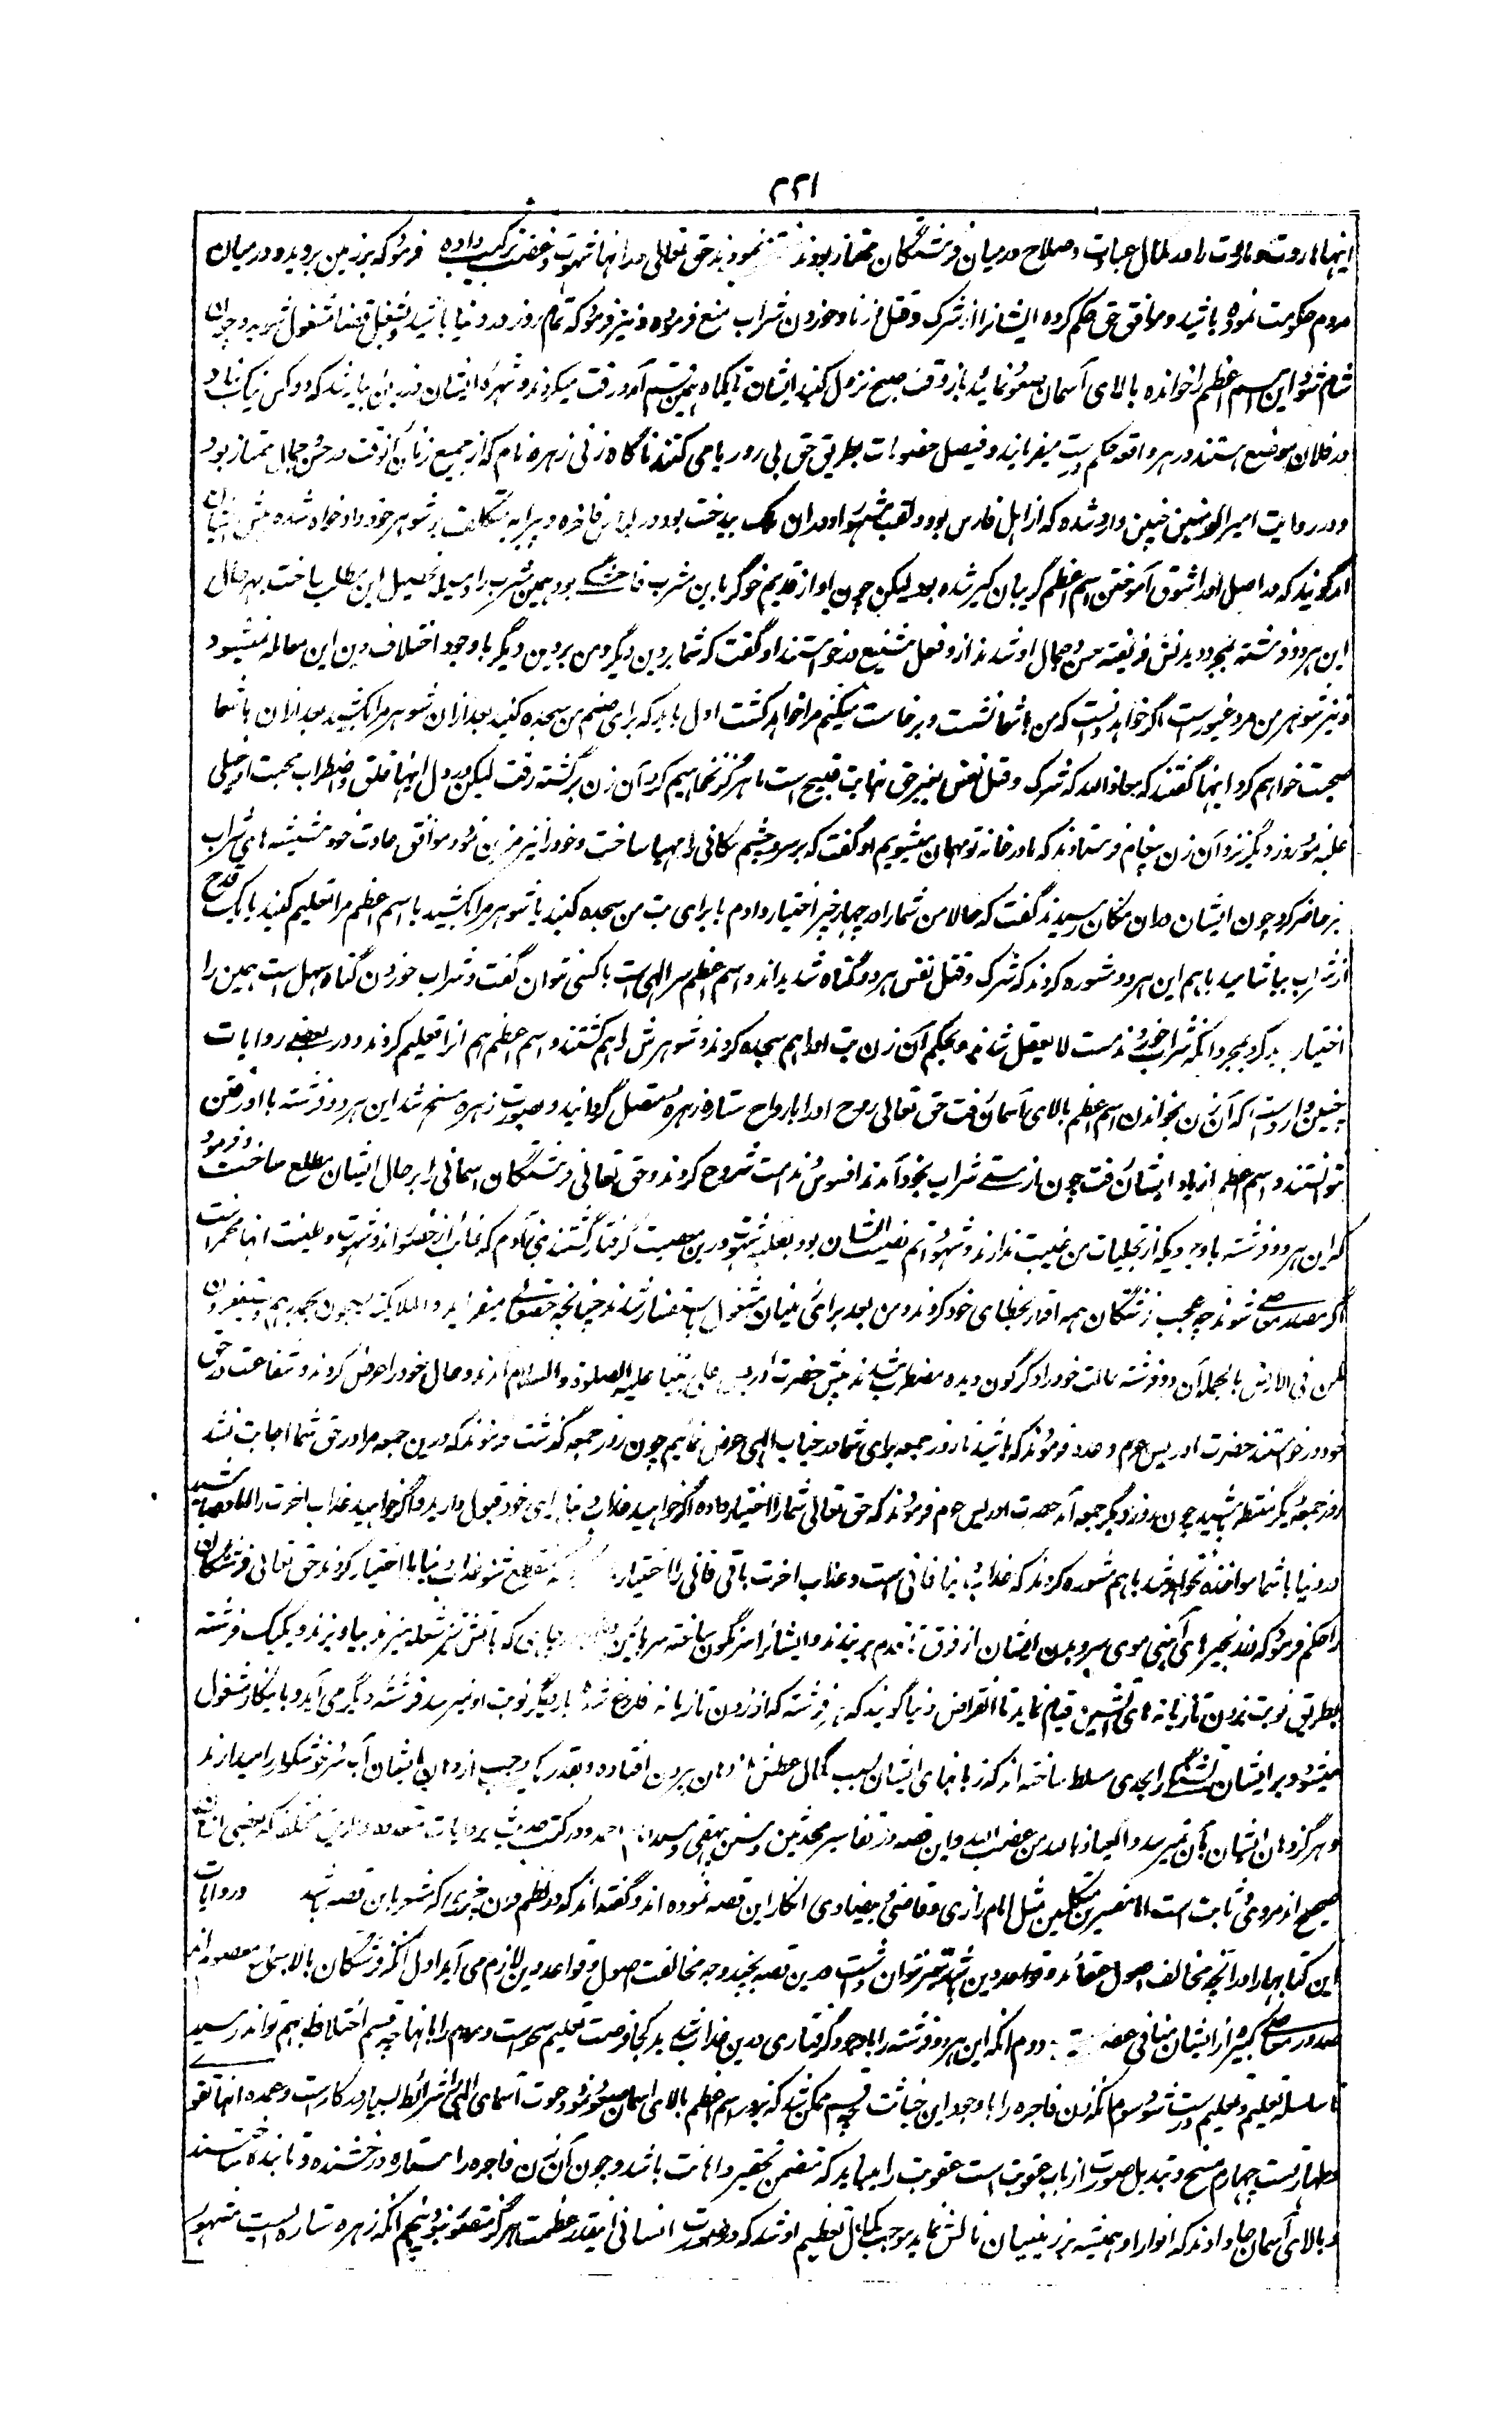 ۲۲۱
اینها هاروت و ماروت را که در کمال عبادت و صلاح در میان فرشتگان ممتاز بودند نمودند حق تعالی در انها شهوت و غضب ترکیب داده فرمود که بر زمین بروید و در میان
مردم حکومت نموده باشید و موافق حق حکم کرده ایشانرا از شرک و قتل و زنا و خوردن شراب منع فرموده و نیز فرمود که تمام روز در دنیا باشید و بشغل قضا مشغول شوید و چون
شام شود این اسم اعظم را خوانده بالای آسمان صعود نمائید باز وقت صبح نزول کنید ایشان تا یکماه بهمین قسم آمد و رفت میکردند و شهره ایشان در جهان که دو کس نیک نهاد
در فلان موضع هستند در هر واقعه حکم درست میفرمایند و فیصل خصومات بطریق حق بی رو و ریا می کنند ناگاه زنی زهره نام که از جمیع زنان آنوقت در حسن و جمال ممتاز بود
و در روایت امیر المومنین چنین وارد شده که از اهل فارس بود و لقب مشهور او دران ملک بیدخت بود در لباس فاخره و پیرایه بتکلف بر شوهر خود دادخواه شده پیش ایشان
آمد گویند که در اصل اورا شوق آموختن اسم اعظم گریبان گیر شده بود لیکن چون او از قدیم خوگر باین مشرب فاحشگی بود همین مشرب را وسیله تحصیل این مطلب ساخت بهر حال
این هر دو فرشته بمجرد دیدنش فریفته حسن و جمال او شدند ازو فعل شنیع درخواستند او گفت که شما بر دین دیگر و من بر دین دیگر با وجود اختلاف دین این معامله نمیشود
و نیز شوهر من مرد غیورست اگر خواهد دانست که من با شما نشست و برخاست میکنم مرا خواهد کشت اول باید که برای صنم من سجده کنید بعد ازان شوهر مرا بکشید بعد ازان با شما
صحبت خواهم کرد اینها گفتند که معاذ الله که شرک و قتل نفس بغیر حق نهایت قبیح است ما هرگز نخواهیم کرد آن زن برگشته رفت لیکن در دل اینها قلق و اضطراب محبت او خیلی
غلبه نمود روز دیگر نزد آن زن پیغام فرستادند که ما در خانه تو مهمان میشویم او گفت که بر سر و چشم مکانی را مهیا ساخت و خود را نیز مزین نمود موافق عادت خود شیشه های شراب
نیز حاضر کرد چون ایشان دران مکان رسیدند گفت که حالا من شما را در چهار چیز اختیار دادم یا برای بت من سجده کنید یا شوهر مرا بکشید یا اسم اعظم مرا تعلیم کنید یا یک قدح
از شراب بیاشامید باهم این هر دو مشوره کردند که شرک و قتل نفس هر دو گناه شدیداند و اسم اعظم سر الهی است با کسی نتوان گفت و شراب خوردن گناه سهل است همین را
اختیار باید کرد بمجرد آنکه شراب خوردند مست لا یعقل شدند و بحکم آن زن بت اورا هم سجده کردند و شوهرش را هم کشتند و اسم اعظم هم آنرا تعلیم کردند و در بعضی روایات
چنین وارد است که آن زن بخواندن اسم اعظم بالای آسمان رفت حق تعالی روح اورا با روح ستاره زهره متصل گردانید و بصورت زهره مسخ شد این هر دو فرشته با او رفتن
نتوانستند و اسم اعظم از یاد ایشان رفت چون از مستی شراب بخود آمدند افسوس و ندامت شروع کردند و حق تعالی فرشتگان آسمانی را بر حال ایشان مطلع ساخت و فرمود
که این هر دو فرشته با وجودیکه از تجلیات من غیبت ندارند و شهوت هم نصیب ایشان بود بغلبه شهوت درین معصیت گرفتار گشتند بنی آدم که غائب از حضوراند و شهوت و طینت انها مخمر است
اگر مصدر معاصی شوند چه عجب فرشتگان همه اقرار بخطای خود کردند و من بعد برای زمینیان مشغول باستغفار شدند چنانچه حق تعالی میفرماید والملائکة یسبحون بحمد ربهم ویستغفرون
لمن فی الارض بالجمله آن دو فرشته حالت خود را دگرگون دیده مضطرب شدند پیش حضرت ادریس علی نبینا علیه الصلوة والسلام آمدند و حال خود را عرض کردند و شفاعت در حق
خود درخواستند حضرت ادریس ع م وعده فرمودند که باشید تا روز جمعه برای شما در جناب الهی عرض نمایم چون روز جمعه گذشت فرمودند که درین جمعه مرا در حق شما اجابت نشد
روز جمعه دیگر منتظر باشید چون روز دیگر جمعه آمد حضرت ادریس ع م فرمودند که حق تعالی شما را اختیار داده اگر خواهید عذاب دنیا برای خود قبول دارید و اگر خواهید عذاب اخرت را
در دنیا با شما مواخذه نخواهد شد باهم مشوره کردند که عذاب دنیا فانی است و عذاب اخرت باقی فانی را اختیار منقطع شود عذاب دنیا را اختیار کردند حق تعالی فرشتگان
را حکم فرمود که بزنجیرهای آهنی موی سر و بدن ایشان از فرق تا قدم بربندند و ایشانرا سرنگون ساخته سر پائین که باتش تیز شعله میزند بیاویزند و یک یک فرشته
بطریق نوبت بزدن تازیانه های آتشین قیام نماید تا انقراض دنیا گویند که هر فرشته که از زدن تازیانه فارغ شد بار دیگر نوبت او نمیرسد فرشته دیگر می آید و باینکار مشغول
میشود و بر ایشان تشنگی را بحدی مسلط ساخته اند که زبانهای ایشان بسبب کمال عطش از دهان بیرون افتاده و بقدر یک وجب از دهان ایشان آب سرد خوشگوار را میدارند
و هرگز دهان ایشان بآن نمیرسد والعیاذ بالله من غضب الله و این قصه در تفاسیر محدثین و سنن بیهقی و مسند امام احمد و در کتب حدیث بروایات متعدده و طرق مختلفه که بعضی ازان
صحیح اند مروی و ثابت است اما مفسرین متکلمین مثل امام رازی و قاضی بیضاوی انکار این قصه نموده اند و گفته اند که در نظم قرآن چیزی که مشعر باین قصه باشد و روایات
این کتابها را در آنچه مخالف اصول عقائد و قواعد دین باشد معتبر نتوان داشت و درین قصه بچند وجه مخالفت اصول و قواعد دین لازم می آید اول آنکه فرشتگان بالاجماع معصوم اند
صدور معاصی کبیره از ایشان منافی عصمت دوم آنکه این هر دو فرشته را با وجود گرفتاری درین عذاب شدید کجا فرصت تعلیم سحر است و مردم را بانها چه قسم اختلاط بهم تواند رسید
تا سلسله تعلیم و تعلم درست شود سوم آنکه زن فاجره را با وجود این خباثت چه قسم ممکن شد که بزور اسم اعظم بالای آسمان صعود نمود دعوت اسمای الهی را شرائط بسیار در کارست و عمده آنها تقوی
و طهارتست چهارم مسخ و تبدیل صورت از باب عقوبت است عقوبت را میباید که متضمن تحقیر و اهانت باشد و چون آن زن فاجره را ستاره درخشنده و تابنده ساختند
و بالای آسمان جا دادند که انوار او همیشه بر زمینیان تابش نماید موجب کمال تعظیم او شد که در صورت انسانی اینقدر عظمت هرگز متصور نبود پنجم آنکه زهره ستاره ایست مشهور